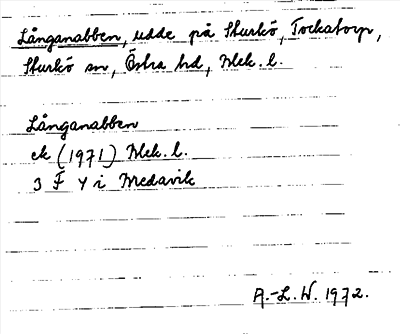 Långanabben, udde på Sturkö, Tockatorp,
Sturkö sn, Östra hd, Blek. l.
Långanabben
ek (1971) Blek. l.
3 F Y i Bredavik
A.-L. W. 1972.